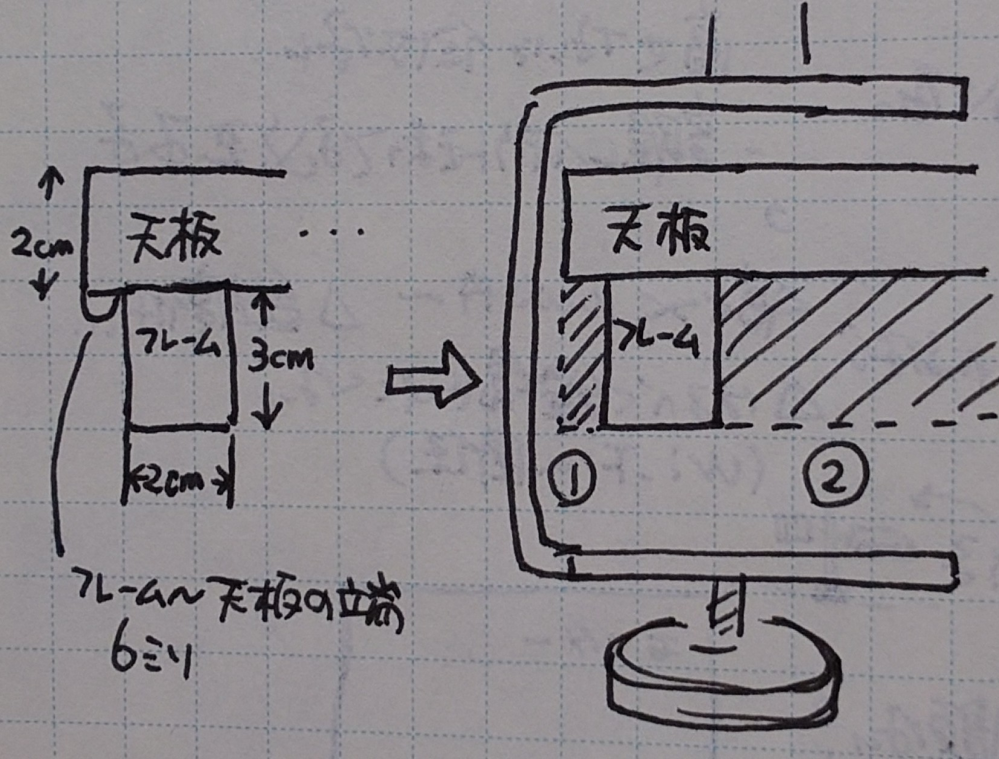 2cm
天板
・・・
フレーム
3cm
2cm
フレーム〜天板の立端
6ミリ
天板
フレーム
①
②